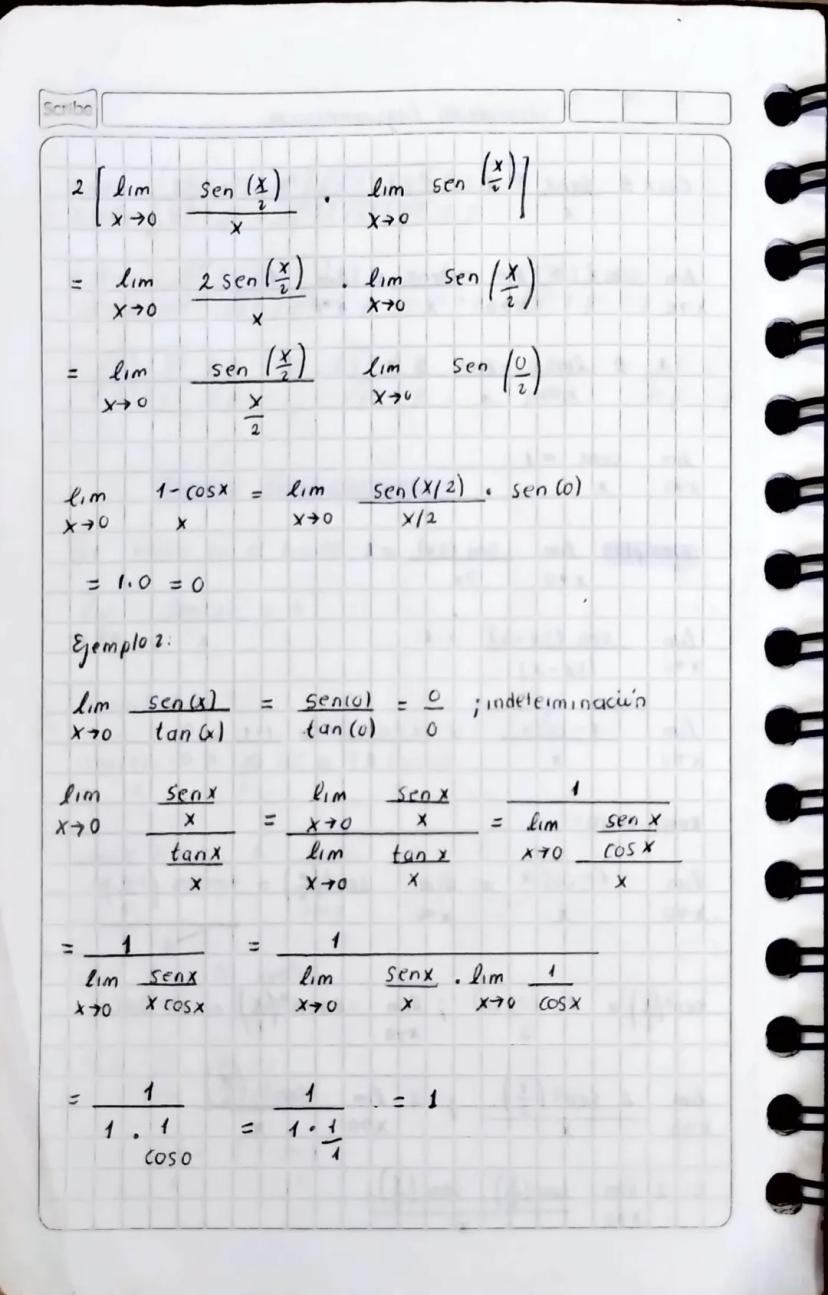 Scribe
2 [ lim x→0 sen (x/2) / x · lim x→0 sen (x/2) ]
= lim x→0 2 sen (x/2) / x · lim x→0 sen (x/2)
= lim x→0 sen (x/2) / (x/2) lim x→0 sen (0/2)
lim x→0 1-cosx / x = lim x→0 sen (x/2) / x/2 · sen (0)
= 1·0 = 0
Ejemplo 2:
lim x→0 sen(x) / tan(x) = sen(0) / tan(0) = 0/0 ; indeterminación
lim x→0 (senx / x) / (tanx / x) = (lim x→0 senx / x) / (lim x→0 tanx / x) = 1 / (lim x→0 (sen x / cos x) / x)
= 1 / (lim x→0 senx / x cosx) = 1 / (lim x→0 senx / x · lim x→0 1 / cosx)
= 1 / (1 · 1 / cos0) = 1 / (1 · 1/1) = 1